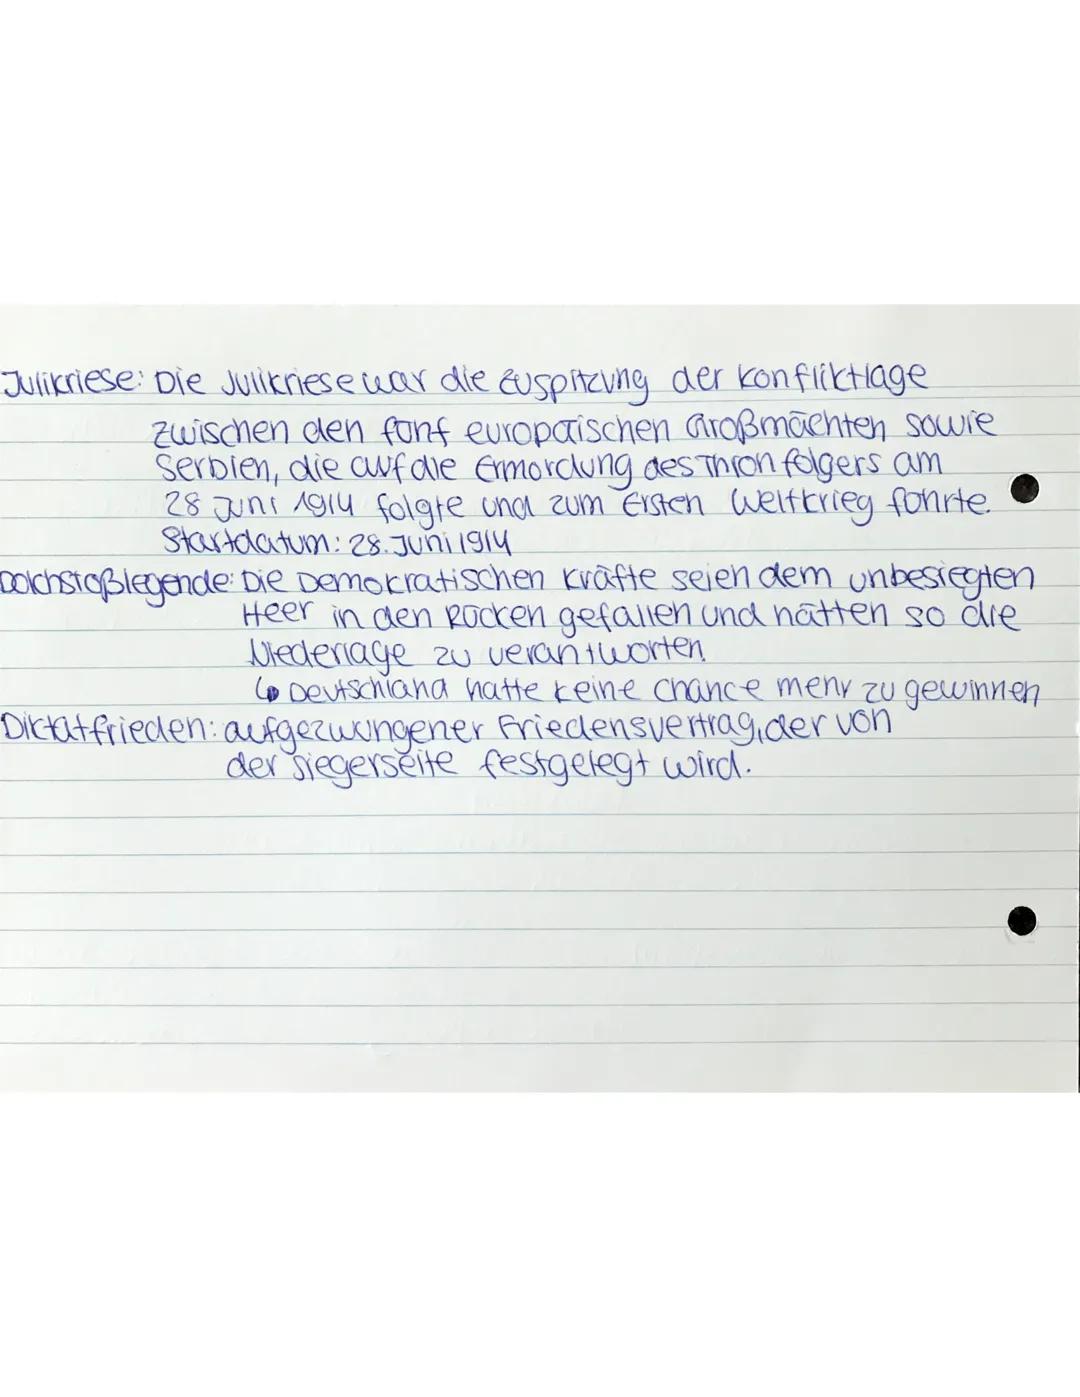 Julikriese: Die Julikriese war die Zuspitzung der Konfliktlage
zwischen den fünf europäischen Großmächten sowie
Serbien, die auf die Ermordung des Thronfolgers am
28 Juni 1914 folgte und zum Ersten Weltkrieg führte.
Startdatum: 28. Juni 1914
Dolchstoßlegende: Die Demokratischen Kräfte seien dem unbesiegten
Heer in den Rücken gefallen und hätten so die
Niederlage zu verantworten.
↳ Deutschland hatte keine Chance mehr zu gewinnen
Dictatfrieden: aufgezwungener Friedensvertrag, der von
der Siegerseite festgelegt wird.